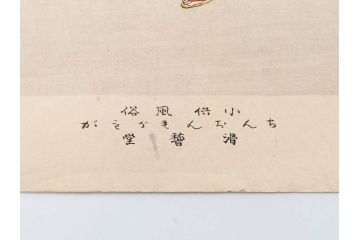 小供風俗
ちんちんもがもが
滑稽堂